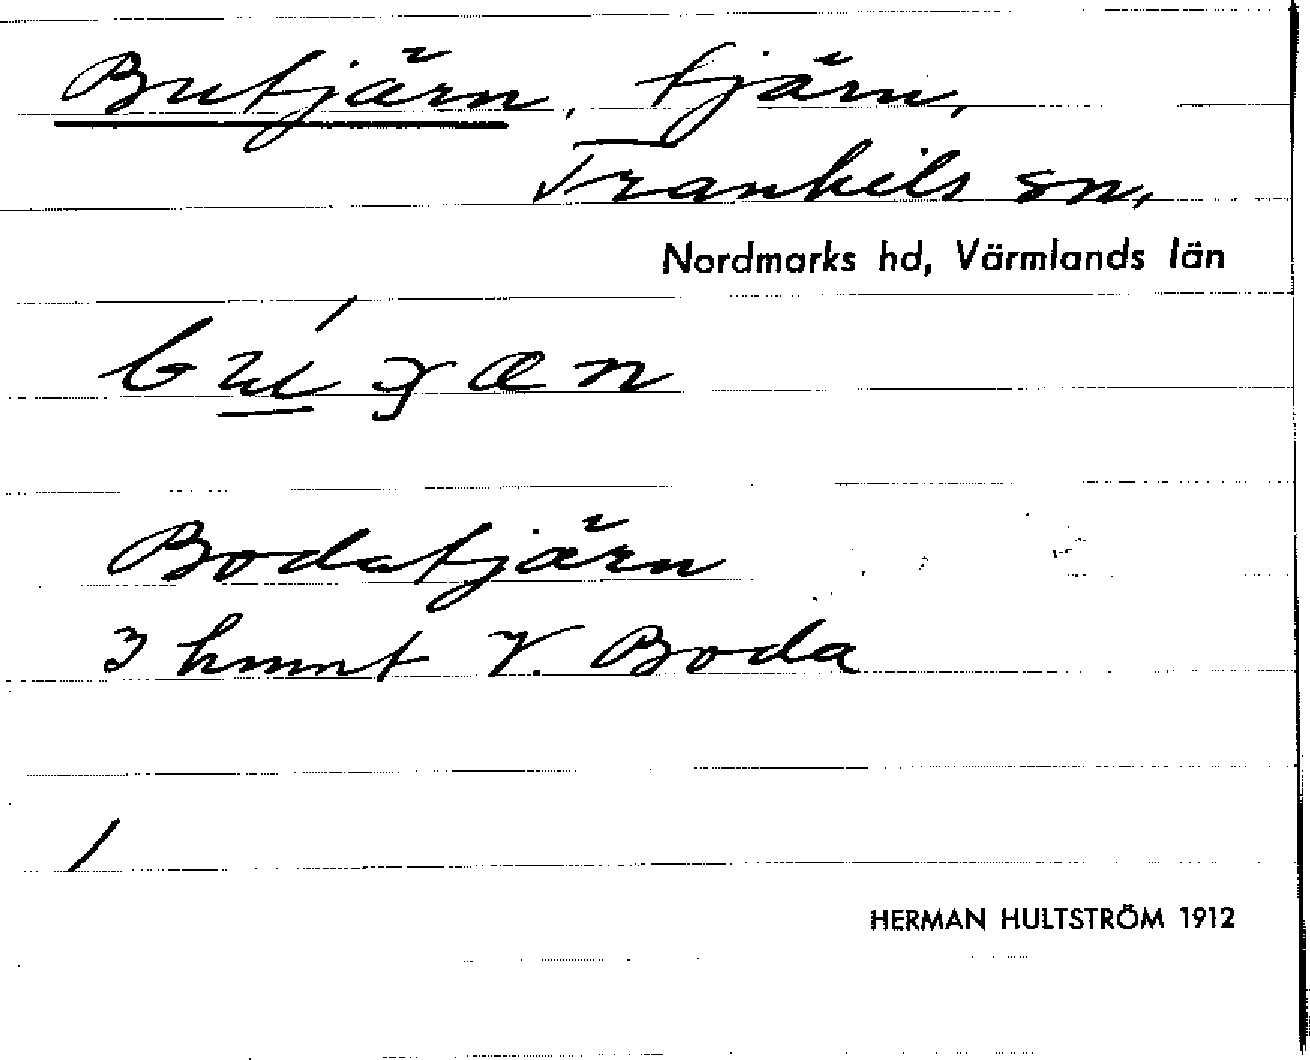 Butjärn, tjärn,
Trankils sn,
Nordmarks hd, Värmlands län
Bodatjärn
I hmnt V. Boda
HERMAN HULTSTRÖM 1912